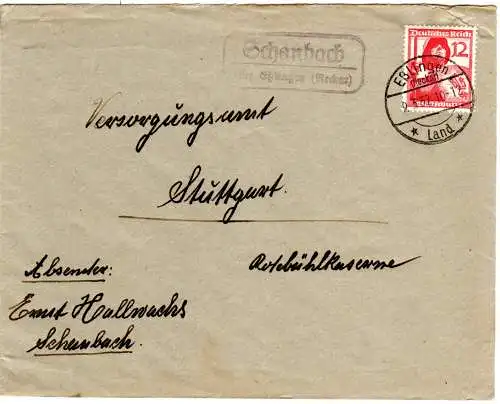 Schanbach
über Eßlingen (Neckar)
Deutsches Reich
12
Eßlingen
(Neckar)
* Land *
Versorgungsamt
Stuttgart.
Rotebühlkaserne
Absender:
Ernst Hallwachs
Schanbach.